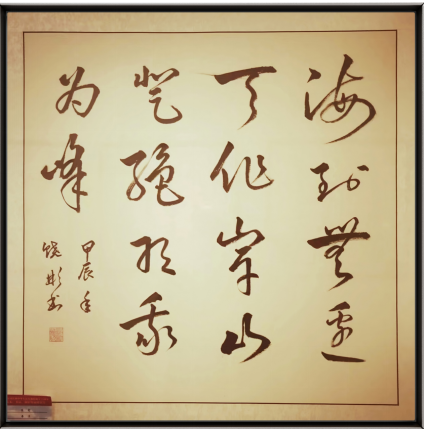 海到無邊
天作岸山
登絕頂我
为峰
甲辰年
饶彬书